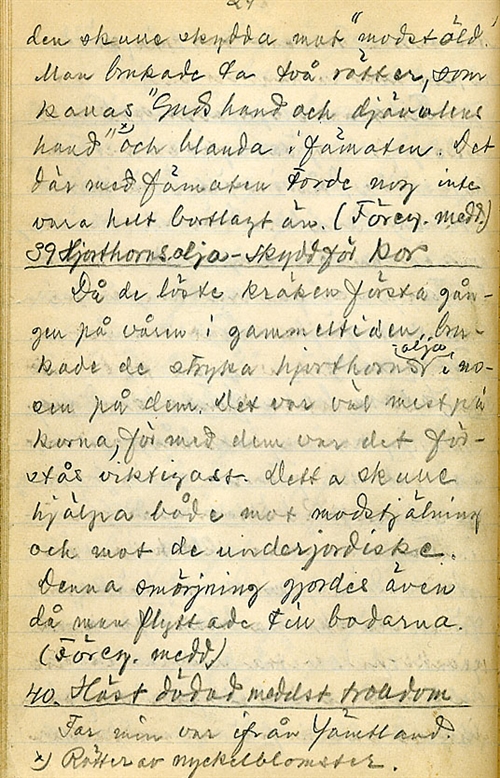 den skulle skydda mot "modstöld."
Man brukade ta två rötter, som
kallas "Guds hand och djävulens
hand" x) och blanda i fämaten. Det
där med fämaten torde nog inte
vara helt bortlagt än. (Föreg. medd.)
39 Hjorthornsolja - skydd för kor
Då de löste kräken första gån-
gen på våren i gammeltiden, bru-
kade de stryka hjorthornsolja i no-
sen på dem. Det var väl mest på
korna, för med dem var det för-
stås viktigast. Detta skulle
hjälpa både mot modstjälning
och mot de underjordiske.
Denna smörjning gjordes även
då man flyttade till bodarna.
(Föreg. medd)
40. Häst dödad medelst trolldom
Far min var ifrån Jämtland.
x) Rötter av nyckelblomster.